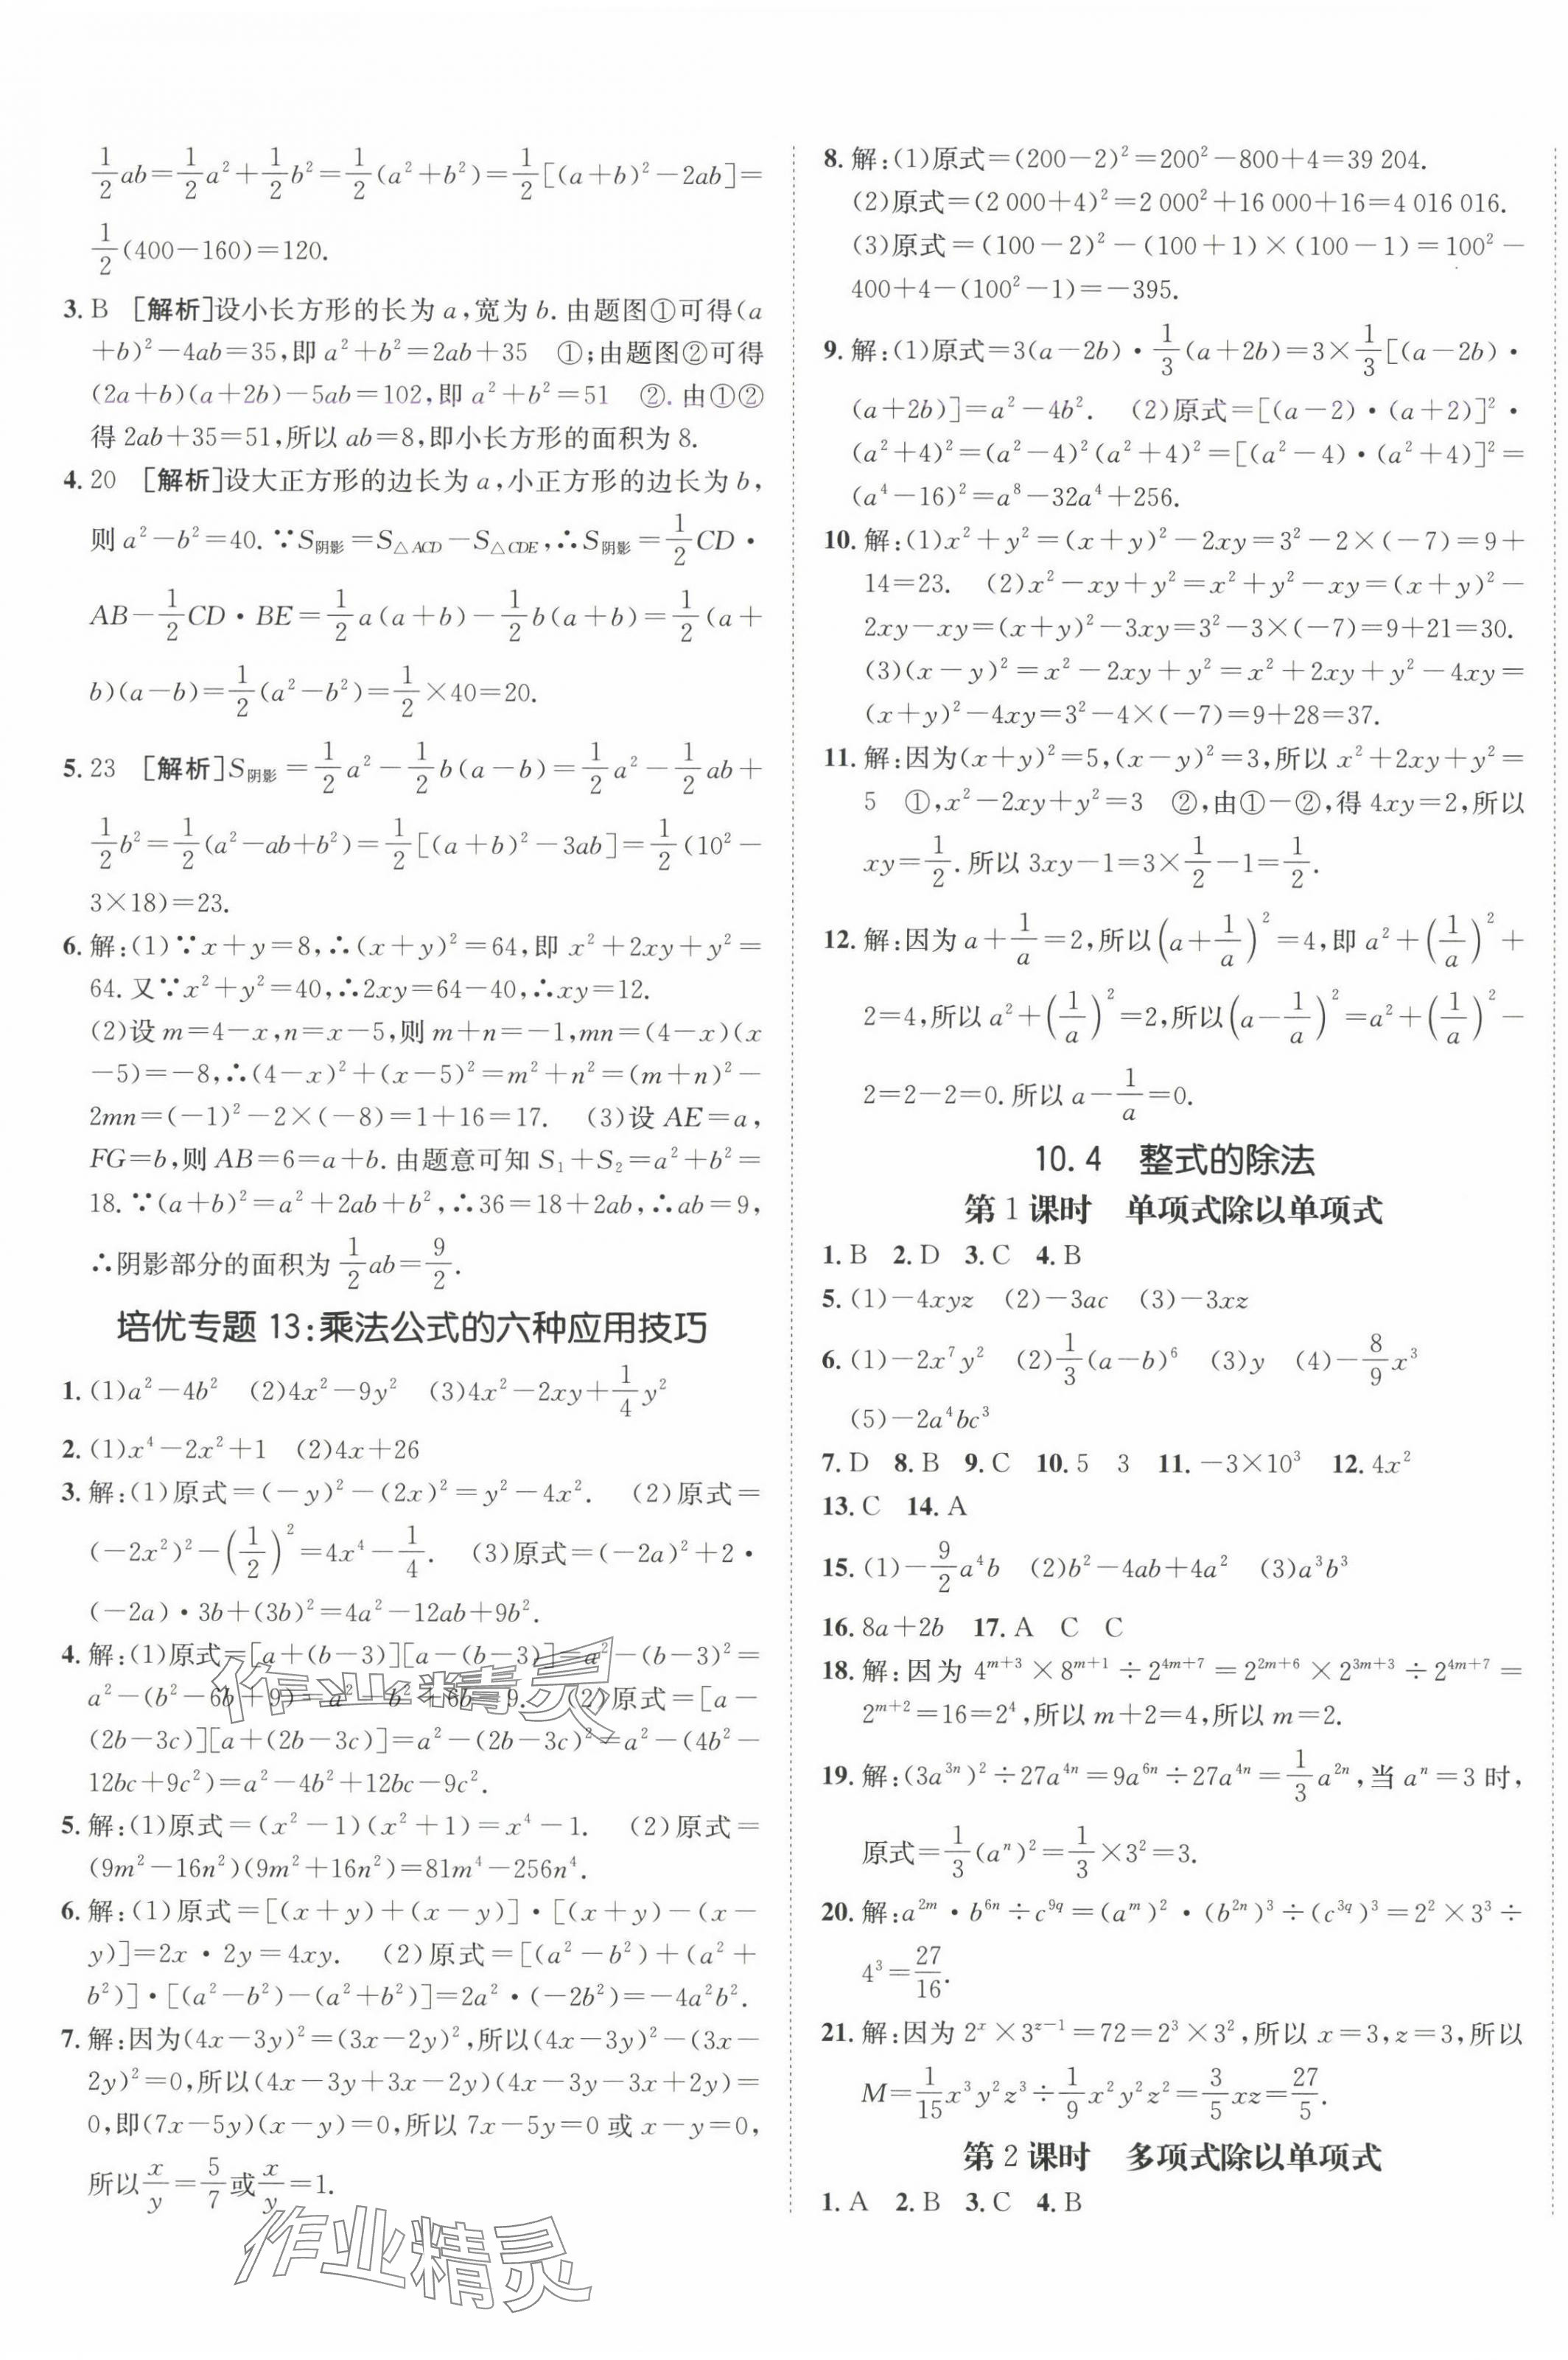 ½ab=½a²+½b²=½(a²+b²)=½[(a+b)²−2ab]=
½(400−160)=120.
3. B [解析]设小长方形的长为a,宽为b.由题图①可得(a
+b)²−4ab=35,即a²+b²=2ab+35 ①;由题图②可得
(2a+b)(a+2b)−5ab=102,即a²+b²=51 ②.由①②
得2ab+35=51,所以ab=8,即小长方形的面积为8.
4. 20 [解析]设大正方形的边长为a,小正方形的边长为b,
则a²−b²=40.∵S阴影=S△ACD−S△CDE,∴S阴影=½CD·
AB−½CD·BE=½a(a+b)−½b(a+b)=½(a+
b)(a−b)=½(a²−b²)=½×40=20.
5. 23 [解析]S阴影=½a²−½b(a−b)=½a²−½ab+
½b²=½(a²−ab+b²)=½[(a+b)²−3ab]=½(10²−
3×18)=23.
6. 解:(1)∵x+y=8,∴(x+y)²=64,即x²+2xy+y²=
64.又∵x²+y²=40,∴2xy=64−40,∴xy=12.
(2)设m=4−x,n=x−5,则m+n=−1,mn=(4−x)(x
−5)=−8,∴(4−x)²+(x−5)²=m²+n²=(m+n)²−
2mn=(−1)²−2×(−8)=1+16=17. (3)设AE=a,
FG=b,则AB=6=a+b.由题意可知S₁+S₂=a²+b²=
18.∵(a+b)²=a²+2ab+b²,∴36=18+2ab,∴ab=9,
∴阴影部分的面积为½ab=9/2.
培优专题13:乘法公式的六种应用技巧
1. (1)a²−4b² (2)4x²−9y² (3)4x²−2xy+¼y²
2. (1)x⁴−2x²+1 (2)4x+26
3. 解:(1)原式=(−y)²−(2x)²=y²−4x². (2)原式=
(−2x²)²−(½)²=4x⁴−¼. (3)原式=(−2a)²+2·
(−2a)·3b+(3b)²=4a²−12ab+9b².
4. 解:(1)原式=[a+(b−3)][a−(b−3)]=a²−(b−3)²=
a²−(b²−6b+9)=a²−b²+6b−9. (2)原式=[a−
(2b−3c)][a+(2b−3c)]=a²−(2b−3c)²=a²−(4b²−
12bc+9c²)=a²−4b²+12bc−9c².
5. 解:(1)原式=(x²−1)(x²+1)=x⁴−1. (2)原式=
(9m²−16n²)(9m²+16n²)=81m⁴−256n⁴.
6. 解:(1)原式=[(x+y)+(x−y)]·[(x+y)−(x−
y)]=2x·2y=4xy. (2)原式=[(a²−b²)+(a²+
b²)]·[(a²−b²)−(a²+b²)]=2a²·(−2b²)=−4a²b².
7. 解:因为(4x−3y)²=(3x−2y)²,所以(4x−3y)²−(3x−
2y)²=0,所以(4x−3y+3x−2y)(4x−3y−3x+2y)=
0,即(7x−5y)(x−y)=0,所以7x−5y=0或x−y=0,
所以x/y=5/7或x/y=1.
8. 解:(1)原式=(200−2)²=200²−800+4=39 204.
(2)原式=(2 000+4)²=2 000²+16 000+16=4 016 016.
(3)原式=(100−2)²−(100+1)×(100−1)=100²−
400+4−(100²−1)=−395.
9. 解:(1)原式=3(a−2b)·⅓(a+2b)=3×⅓[(a−2b)·
(a+2b)]=a²−4b². (2)原式=[(a−2)·(a+2)]²·
(a²+4)²=(a²−4)²(a²+4)²=[(a²−4)·(a²+4)]²=
(a⁴−16)²=a⁸−32a⁴+256.
10. 解:(1)x²+y²=(x+y)²−2xy=3²−2×(−7)=9+
14=23. (2)x²−xy+y²=x²+y²−xy=(x+y)²−
2xy−xy=(x+y)²−3xy=3²−3×(−7)=9+21=30.
(3)(x−y)²=x²−2xy+y²=x²+2xy+y²−4xy=
(x+y)²−4xy=3²−4×(−7)=9+28=37.
11. 解:因为(x+y)²=5,(x−y)²=3,所以x²+2xy+y²=
5 ①,x²−2xy+y²=3 ②,由①−②,得4xy=2,所以
xy=½.所以3xy−1=3×½−1=½.
12. 解:因为a+1/a=2,所以(a+1/a)²=4,即a²+(1/a)²+
2=4,所以a²+(1/a)²=2,所以(a−1/a)²=a²+(1/a)²−
2=2−2=0.所以a−1/a=0.
10.4 整式的除法
第1课时 单项式除以单项式
1. B 2. D 3. C 4. B
5. (1)−4xyz (2)−3ac (3)−3xz
6. (1)−2x⁷y² (2)⅓(a−b)⁶ (3)y (4)−8/9x³
(5)−2a⁴bc³
7. D 8. B 9. C 10. 5 3 11. −3×10³ 12. 4x²
13. C 14. A
15. (1)−9/2a⁴b (2)b²−4ab+4a² (3)a³b³
16. 8a+2b 17. A C C
18. 解:因为4^{m+3}×8^{m+1}÷2^{4m+7}=2^{2m+6}×2^{3m+3}÷2^{4m+7}=
2^{m+2}=16=2⁴,所以m+2=4,所以m=2.
19. 解:(3a^{3n})²÷27a^{4n}=9a^{6n}÷27a^{4n}=⅓a^{2n},当aⁿ=3时,
原式=⅓(aⁿ)²=⅓×3²=3.
20. 解:a^{2m}·b^{6n}÷c^{9q}=(a^m)²·(b^{2n})³÷(c^{3q})³=2²×3³÷
4³=27/16.
21. 解:因为2^x×3^{z−1}=72=2³×3²,所以x=3,z=3,所以
M=1/15x³y²z³÷1/9x²y²z²=3/5xz=27/5.
第2课时 多项式除以单项式
1. A 2. B 3. C 4. B
作业精灵
作业精灵